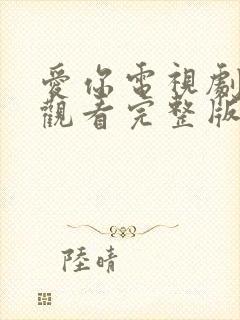 愛你電視劇
觀看完整版
陸晴